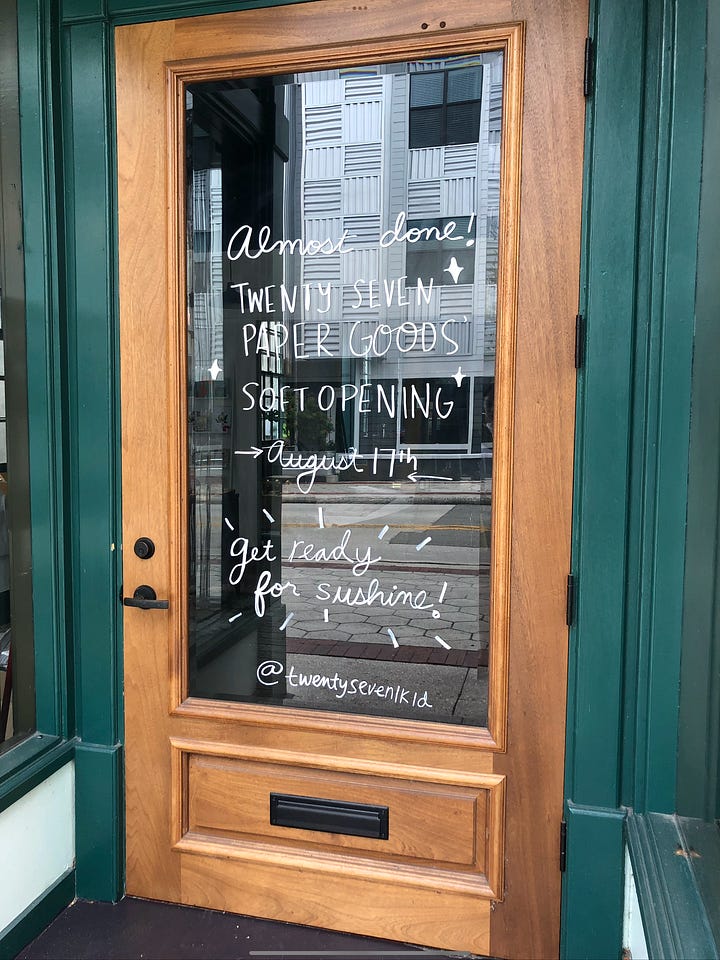 Almost done!
TWENTY SEVEN
PAPER GOODS'
SOFT OPENING
→ August 17th ←
get ready
for sushine!
@twentyseven1kid